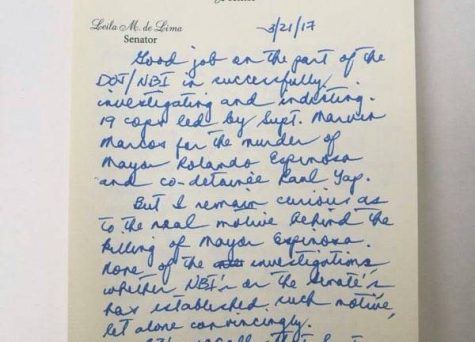 Leila M. de Lima
Senator
3/21/17
Good job on the part of the
DOJ/NBI in successfully
investigating and indicting.
19 cops led by Supt. Marvin
Marcos for the murder of
Mayor Rolando Espinosa
and co-detainee Raul Yap.
But I remain curious as
to the real motive behind the
killing of Mayor Espinosa.
None of the investigations
whether NBI's or the Senate's
has established such motive,
let alone convincingly.